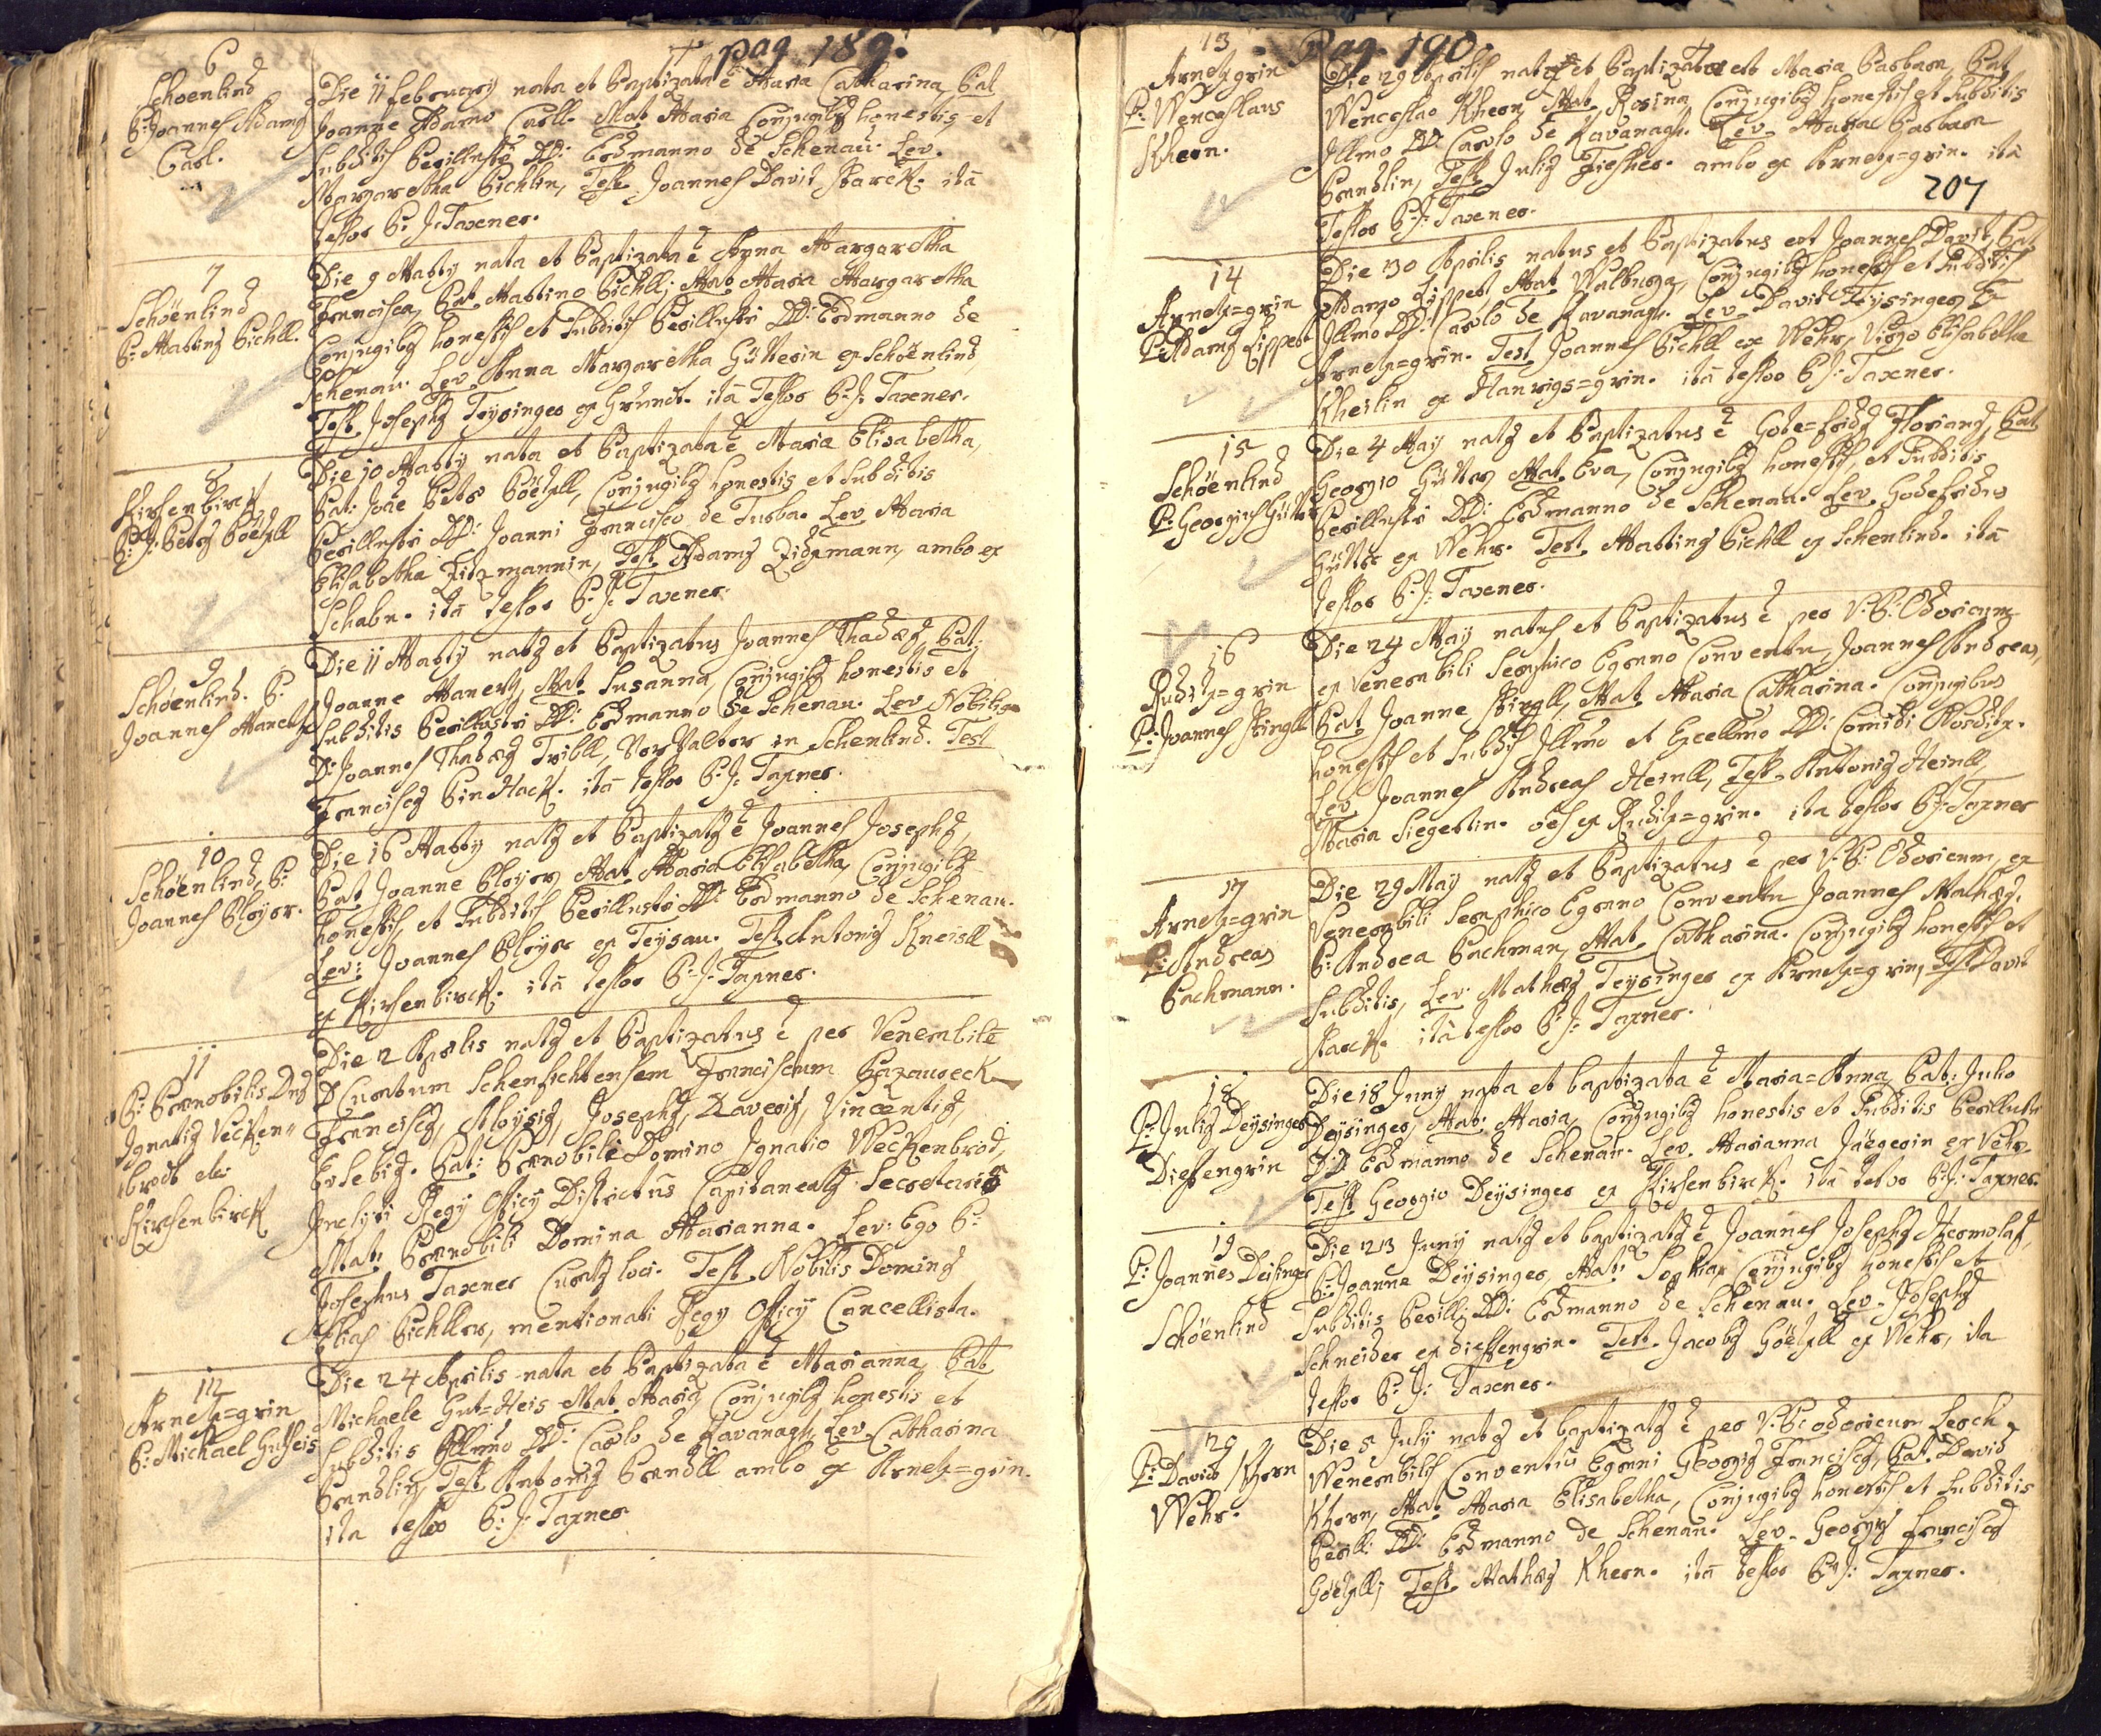 pag 189.
6
Schoenlind
P: Joannes Adamg
Carl.
Die 11 february nata et Baptizata ē Maria Catharina, Pat
Joanne Adamo Carll. Mat. Maria Conjugibg honestis et
Subditis Perillustri DD: Erdmanno de Schenau. Lev.
Margaretha Pichlin, Test. Joannes David Starck. ita
Testor P: J: Taxener.
7
Schöenlind
P: Marting Pichll.
Die 9 Marty nata et Baptizata ē Anna Margaretha
Francisca, Pat. Martino Pichll; Mat. Maria Margaretha
Conjugibg honestis et Subditis Perillustri DD: Erdmanno de
Schenau. Lev. Anna Margaretha Gütterin ex Schöenlind,
Test. Josephg Teysinger ex Grundt. ita Testor P: J: Taxner.
8
Kirsenbirck
P: J: Petrg Göetzll
Die 10 Marty nata et Baptizata ē Maria Elisabetha,
Pat: Joāe Petro Göetzll, Conjugibg honestis et Subditis
Perillustri DD: Joanni Francisco de Turba. Lev. Maria
Elisabetha Zidzmannin, Test. Adamg Zidzmann, ambo ex
Schabn. ita testor P: J: Taxener.
9
Schöenlind. P:
Joannes Manertz
Die 11 Marty natg et Baptizatus Joannes Thadæg, Pat.
Joanne Manertz, Mat. Susanna, Conjugibg honestis et
Subditis Perillustri DD: Erdmanno de Schenau. Lev. Nobilig
D: Joannes Thadæg Tribll, Vorwalter in Schenlind. Test
Francisg Pin Hack. ita testor P: J: Taxner.
10
Schöenlind, P:
Joannes Ployer.
Die 16 Marty natg et Baptizatg ē Joannes Josephg,
Pat. Joanne Ployer, Mat. Maria Elisabetha, Conjugibg
honestis, et Subditis Perillustri DD: Erdmanno de Schenau.
Lev: Joannes Ployer ex Teysau. Test. Antonig Kneisll
ex Kirsenbirck. ita testor P: J: Taxner.
11
P: Prænobilis Dng
Ignatig Vecken=
brodt de
Kirsenbirck
Die 2 Aprilis natg et Baptizatus ē per Venerabilē
D Curatum Schenfichtensem Franciscum
Franciscg, Aloysig, Josephg, Xaverig, Vincentig,
Eusebig. Pat: Prænobili Domino Ignatio Weckenbrod,
Inclyti Regy Officy Districtus Capitanealis Secretario
Mat: Prænobili Domina Marianna. Lev: Ego P:
Josephus Taxener Curatg loci. Test. Nobilis Doming
Elias Pichller, mentionati Regy Officy Cancellista.
12
Arnetz=grin
P: Michael Gutheis
Die 24 Aprilis nata et Baptizata ē Marianna, Pat
Michaele Gut=Heis Mat. Maria, Conjugibg honestis et
Subditis Illmo DD: Carlo de Kavanagh, Lev. Catharina
Brandlin, Test. Antonig Brandll ambo ex Arnetz=grin.
ita testor P: J: Taxner
Pag. 190
207
13
Arnetzgrin
P: Wenceslaus
Khern.
Die 29 Aprilis nata et Baptizata est Maria Barbara, Pat
Wenceslao Khern, Mat. Rosina, Conjugibg honestis et Subditis
Illmo DD: Carlo de Kavanagh. Lev. Maria Barbara
Brandlin, Test. Julig Fiessler. ambo ex Arnetz=grin. ita
Testor P: J: Taxener.
14
Arnetz=grin
P: Adamg Lippert
Die 30 Aprilis natus et Baptizatus est Joannes David, Pat
Adamo Lippert, Mat. Walburga, Conjugibg honestis et Subditis
Illmo DD: Carlo de Kavanagh. Lev. David Teysinger ex
Arnetz=grin. Test. Joannes Pichll ex Wehr, Virgo Elisabetha
Kheilin ex Hanrigs=grin. ita testor P: J: Taxner.
15
Schöenlind
P: Georgius Gütter
Die 4 May natg et Baptizatus ē Gode=fridg Floriang, Pat
Georgio Gütter, Mat. Eva, Conjugibg honestis, et Subditis
Perillustri DD: Erdmanno de Schenau. Lev. Godefridus
Gütter ex Wehr. Test. Marting Pichll ex Schenlind. ita
testor P: J: Taxener.
16
Ruditz=grin
P: Joannes Stingll
Die 24 May natus et Baptizatus ē per V: P: Odoricum
ex Venerabili Seraphico Egrano Conventu, Joannes Andreas,
Pat. Joanne Stingll, Mat. Maria Catharina. Conjugibus
honestis et Subdis Illmo et Excellmo DD: Comiti Nostitz.
Lev. Joannes Andreas Heinll, Test. Antonig Heinll,
Maria Siegertin. oēs ex Ruditz=grin. ita testor P: J: Taxner
17
Arnetz=grin
P: Andreas
Bachmann.
Die 29 May natg et Baptizatus ē per V: P: Odoricum, ex
Venerabili Seraphico Egrano Conventu Joannes Mathæg.
P: Andrea Bachman, Mat. Catharina. Conjugibg honestis et
Subditis, Lev: Mathæg Teysinger ex Arnetz=grin, Test David
Starck. ita testor P: J: Taxner.
18
P: Julig Deysinger
Diessengrin
Die 18 Juny nata et baptizata ē Maria=Anna, Pat: Julio
Deysinger, Mat: Maria, Conjugibg honestis et Subditis Perillustri
DD Erdmanno de Schenau. Lev. Marianna Jäegerin ex Vehr.
Test Georgio Deysinger ex Kirsenbirck. ita testor P: J: Taxner.
19
P: Joannes Deisinger
Schöenlind
Die 23 Juny natg et baptizatg ē Joannes Josephg Hermolag,
P: Joanne Deysinger, Mat: Sophia, Conjugibg honestis et
Subditis Perill: DD: Erdmanno de Schenau. Lev. Josephg
Schneider ex diessengrin. Test. Jacobg Göetzll ex Wehr, ita
testor P: J: Taxner.
20
P: David Khern
Wehr.
Die 5 July natg et baptizatg ē per V: P: Odoricum Lerch
Venerabilis Conventus Egrani Georgig Francisg, Pat. David
Khern, Mat. Maria Elisabetha, Conjugibg honestis et Subditis
Perill: DD: Erdmanno de Schenau. Lev. Georgig Franciscg
Göetzll; Test. Mathæg Khern. ita testor P: J: Taxner.